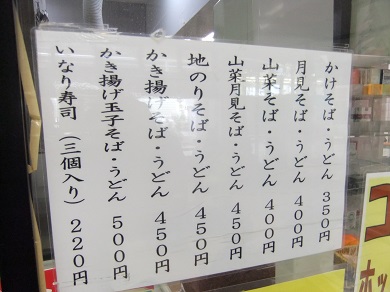 かけそば・うどん 350円
月見そば・うどん 400円
山菜そば・うどん 400円
山菜月見そば・うどん 450円
地のりそば・うどん 450円
かき揚げそば・うどん 450円
かき揚げ玉子そば・うどん 500円
いなり寿司 (三個入り) 220円
コ
ホッ